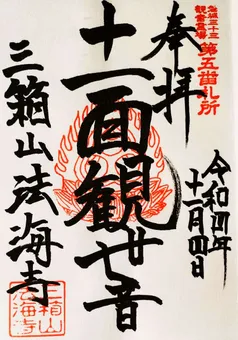 奉拝
第五番札所
令和四年
十一月四日
十一面観世音
三箱山法海寺
三箱山
法海寺